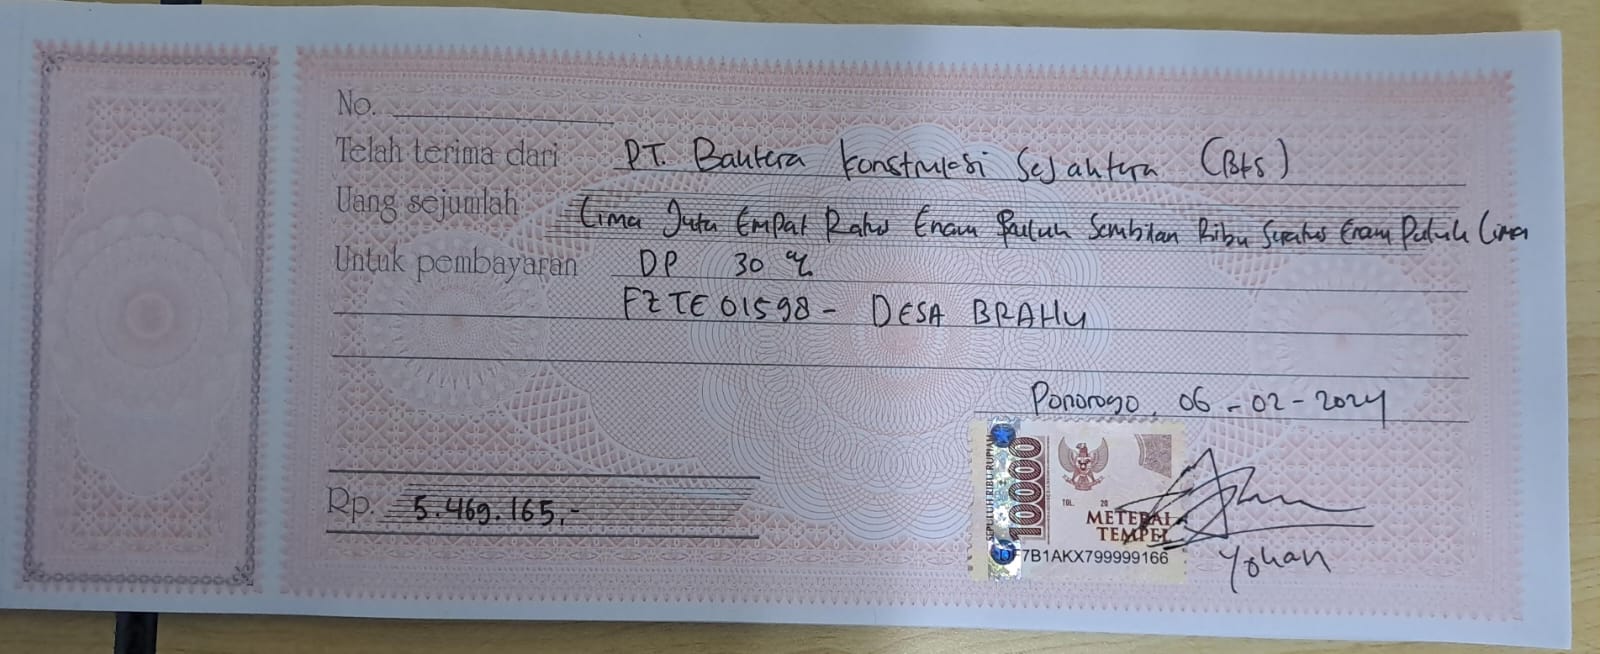 No.
Telah terima dari PT. Bahtera Konstruksi Sejahtera (BKS)
Uang sejumlah Lima Juta Empat Ratus Enam Puluh Sembilan Ribu Seratus Enam Puluh Lima
Untuk pembayaran DP 30 %
FZTE01598 - DESA BRAHU
Ponorogo, 06-02-2024
Rp. 5.469.165,-
SEPULUH RIBU RUPIAH
10000
TGL. 20
METERAI
TEMPEL
7B1AKX799999166
Yohan